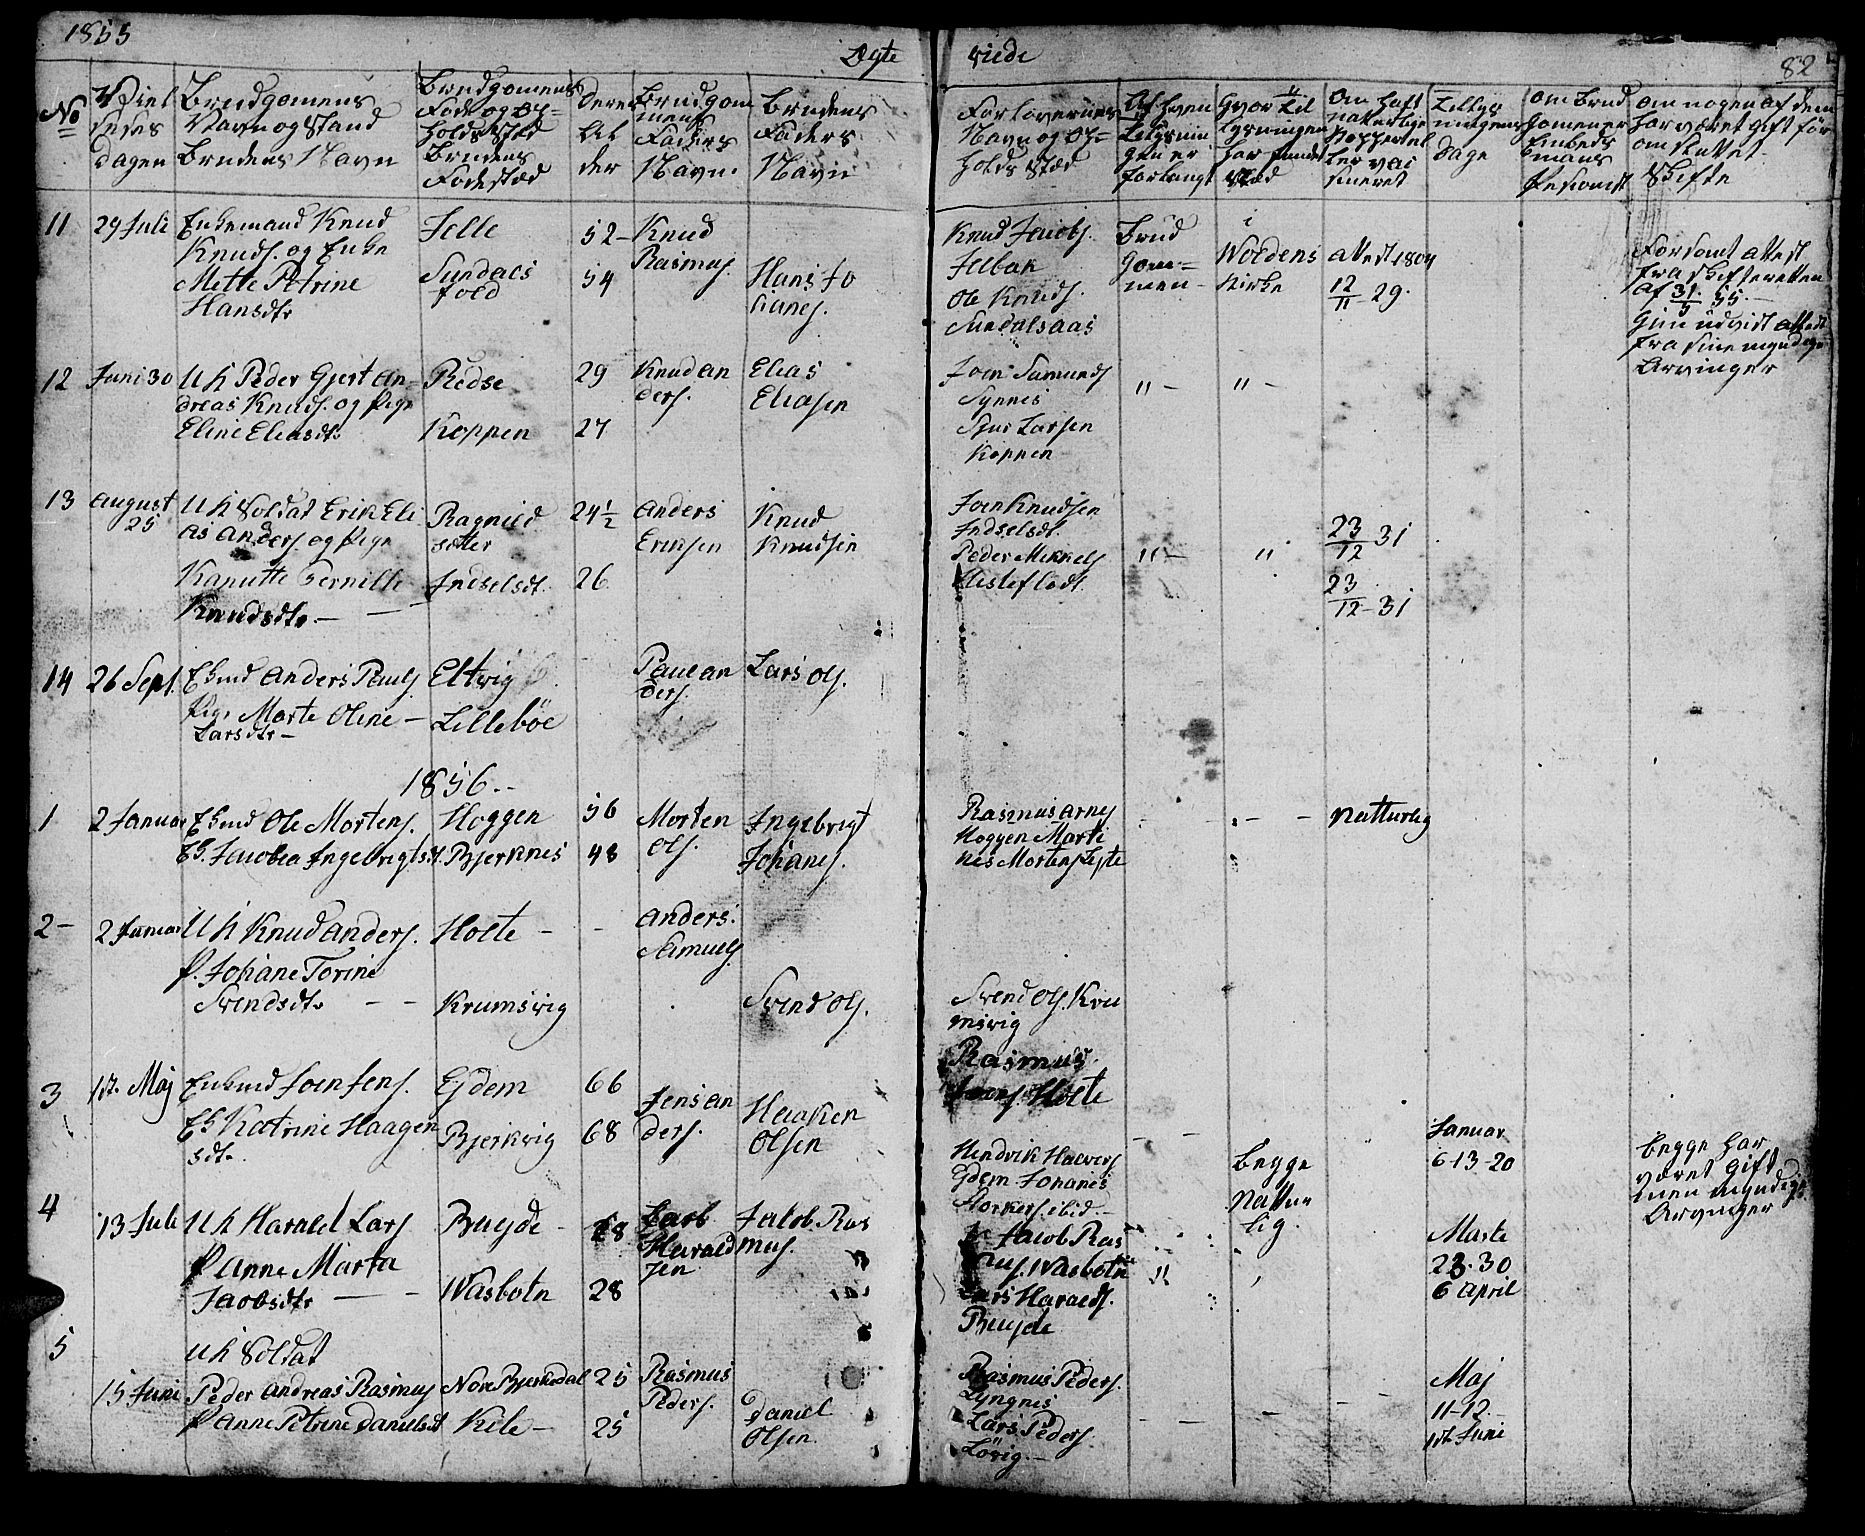 1855
Ægte
viede
82
No
Viel
sesus
dagen
Brudgomens
Navn og Stand
Brudens Navn
Brudgomens
Føde og Op=
holdssted
Brudens
Fødested
Deres
Al
der
Brudgom
mens
Faders
Navn.
Brudens
Faders
Navn
Forlovernes
Navn og Op=
holds Sted
Af hvem
Lysnin
gen er
forlangt
Hvor til
lysningen
har fundet
Sted
Om haft
naturlige
Kopper el
ler vac
sineret
Lillys
ningens
Dage
Om Brud
gomen er
Embeds
mans
Pesionist
Om nogen af dem
har været gift før
om sluttet
Skifte
11
29 Juli
Enkemand Knud
Knuds. og Enke
Mette Petrine
Hansdtr
Jelle
Sundals
fold
52-
54
Knud
Rasmus.
Hans Jo
hanes.
Knud Jacobs.
Jelbak
Ole Knuds.
Sundalsaas
Brud
gom=
men-
i
Woldens
Kirke
attest 1804
12/11 29.
Forsamt attest
fra Skifteretten
af 31/5 55.-
Hun udvidst attest
fra sine myndige
Arvinger
12
Juni 30
U K Peder Gjert An=
dreas Knuds. og Pige
Eline Eliasdtr
Redse
Koppen
29
27
Knud An
ders.
Elias
Eliasen
Joen Samunds
Synnes
Sjur Larsen
Koppen
" -
" -
13
August
25
U K Soldat Erik Eli
as Anders. og Pige
Kanutte Pernille
Knudsdtr. -
Ragnild
sætter
Indselsdt.
24½
26
Anders
Eriksen
Knud
Knudsen
Joen Knudsen
Indselsdt.
Peder Mikkels
Hesteflødt.
" -
"
23/12 31
23/12-31
14
26 Sept.
Ekmd Anders Pauls
Pige Marte Oline -
Larsdtr -
Eltvig
Lillebøe
Paul An
ders.
Lars Ols.
1856.-
1
2 Januar
Ekmd Ole Mortens.
Ek. Jacobea Ingebrigtsdt.
Hoggen
Bjerknes
56
48
Morten
Ols.
Ingebrigt
Johanes.
Rasmus Arnes
Hoggen Marti
nes Mortens Lyte
Natturlig
2-
2 Januar
U K Knud Anders.
P. Johane Torine
Svendsdtr - -
Holte -
Krumsvig
Anders.
Samuels
Svend Ols.
Svend Ols. Kru
msvig
Rasmus
Joens. Holte
3
1st. Maj
Enkmd Joen Jens.
Ek Katrine Haagen
sdt.
Ejdem
Bjerkvig
66
68
Jens An
ders.
Haaken
Olsen
Hendrik Halvors
Ejdem Johanes
Storkers. ibid.-
- -
Begge
Nattur
lig.
Januar
6-13-20
begge har
været gift
men myndige
Arvinger
4
13 Juli
U K Harald Lars
P Anne Marta
Jacobsdtr - -
Brugde -
Wasbotn
28
28
Lars
Harald
sen
Jakob Ras
mus.
Jacob Ras
mus. Wasbotn
Lars Haralds.
Brugde
"
Marts
23.30
6 April
5
15 Juni
U K Soldat
Peder Andreas Rasmus
P Anne Petrine Danielsdt
Nore Bjerkedal
Kile -
25
25
Rasmus
Peders.
Daniel
Olsen.
Rasmus Peders.
Lyngnis
Lars Peders.
Løvig.-
Maj
11-12-
1st. Juni